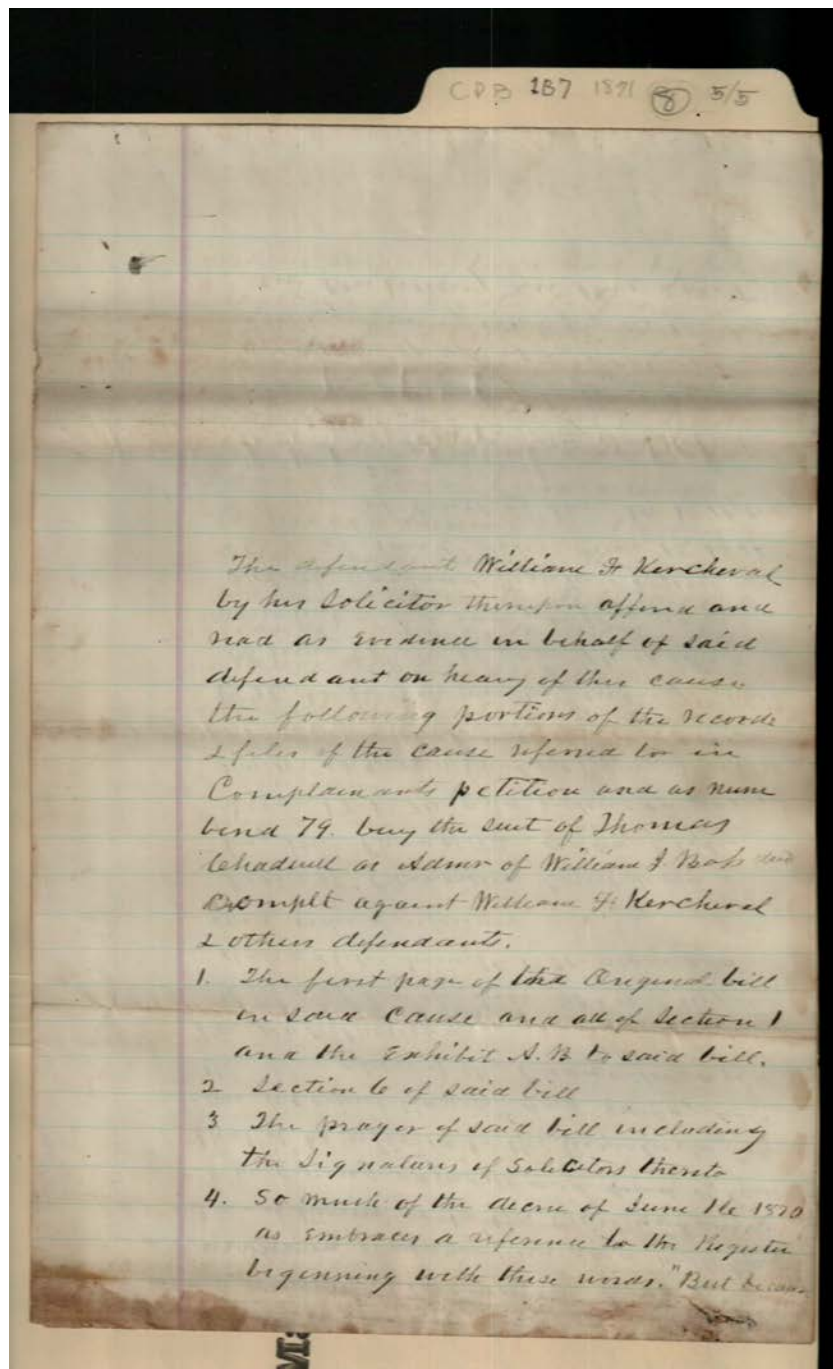 CPB 187 1871 8 5/5
The defendant William F Kercheval
by his Solicitor thereupon offered and
read as evidence in behalf of said
defendant on hearing of this cause
the following portions of the records
& files of the cause referred to in
Complainants petition and as num
bered 79. being the suit of Thomas
Chadwell as Admr of William J
Complt against William F. Kercheval
& others defendants.
1. The first page of the Original bill
in said Cause and all of Section 1
and the Exhibit A. B to said bill.
2 Section 6 of said bill
3 The prayer of said bill including
the Signatures of Solicitors thereto
4. So much of the decree of June 1870
as embraces a reference to the Register
beginning with these words. "But because